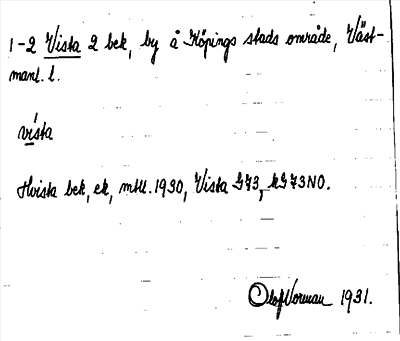 1-2 Vista 2 bek, by å Köpings stads område, Väst-
manl. l.
vísta
Hvista bek, ek, mtll. 1930, Vista G73, kG73NO.
Olof Vorman 1931.